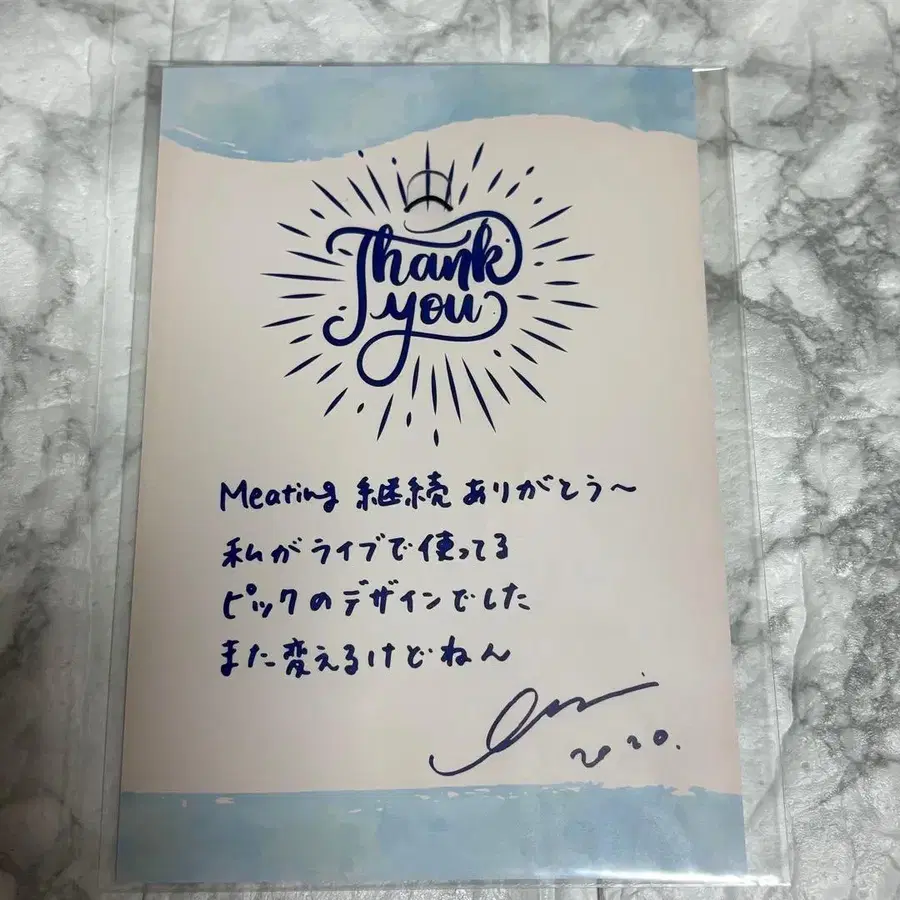 Thank
you
Meating 継続ありがとう〜
私がライブで使ってる
ピックのデザインでした
また変えるけどねん
2020.